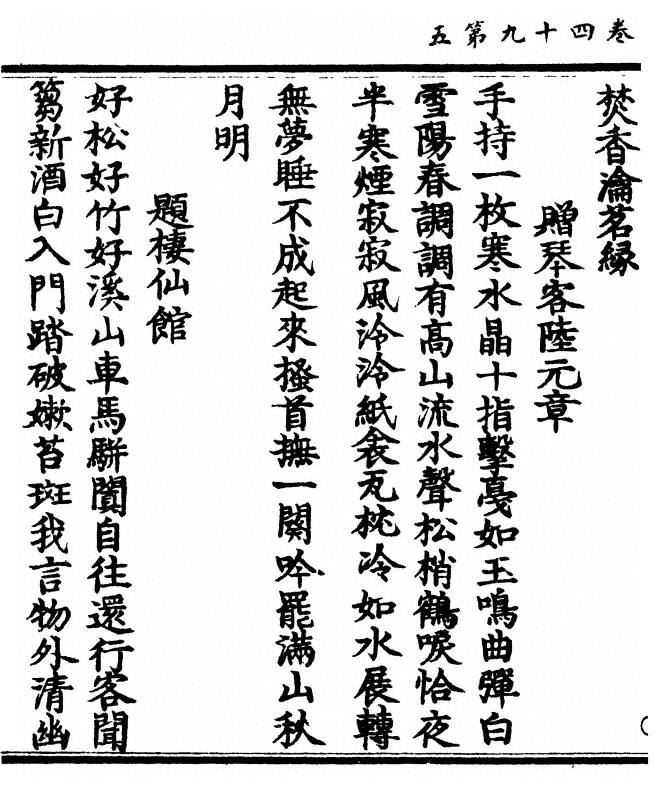 卷四十九第五
焚香瀹茗緣
贈琴客陸元章
手持一枚寒水晶十指擊戞如玉鳴曲彈白
雪陽春調調有高山流水聲松梢鶴唳恰夜
半寒煙寂寂風泠泠紙衾瓦枕冷如水展轉
無夢睡不成起來搔首撫一闋吟罷滿山秋
月明
題棲仙館
好松好竹好溪山車馬駢闐自往還行客聞
篘新酒白入門踏破嫩苔斑我言物外清幽